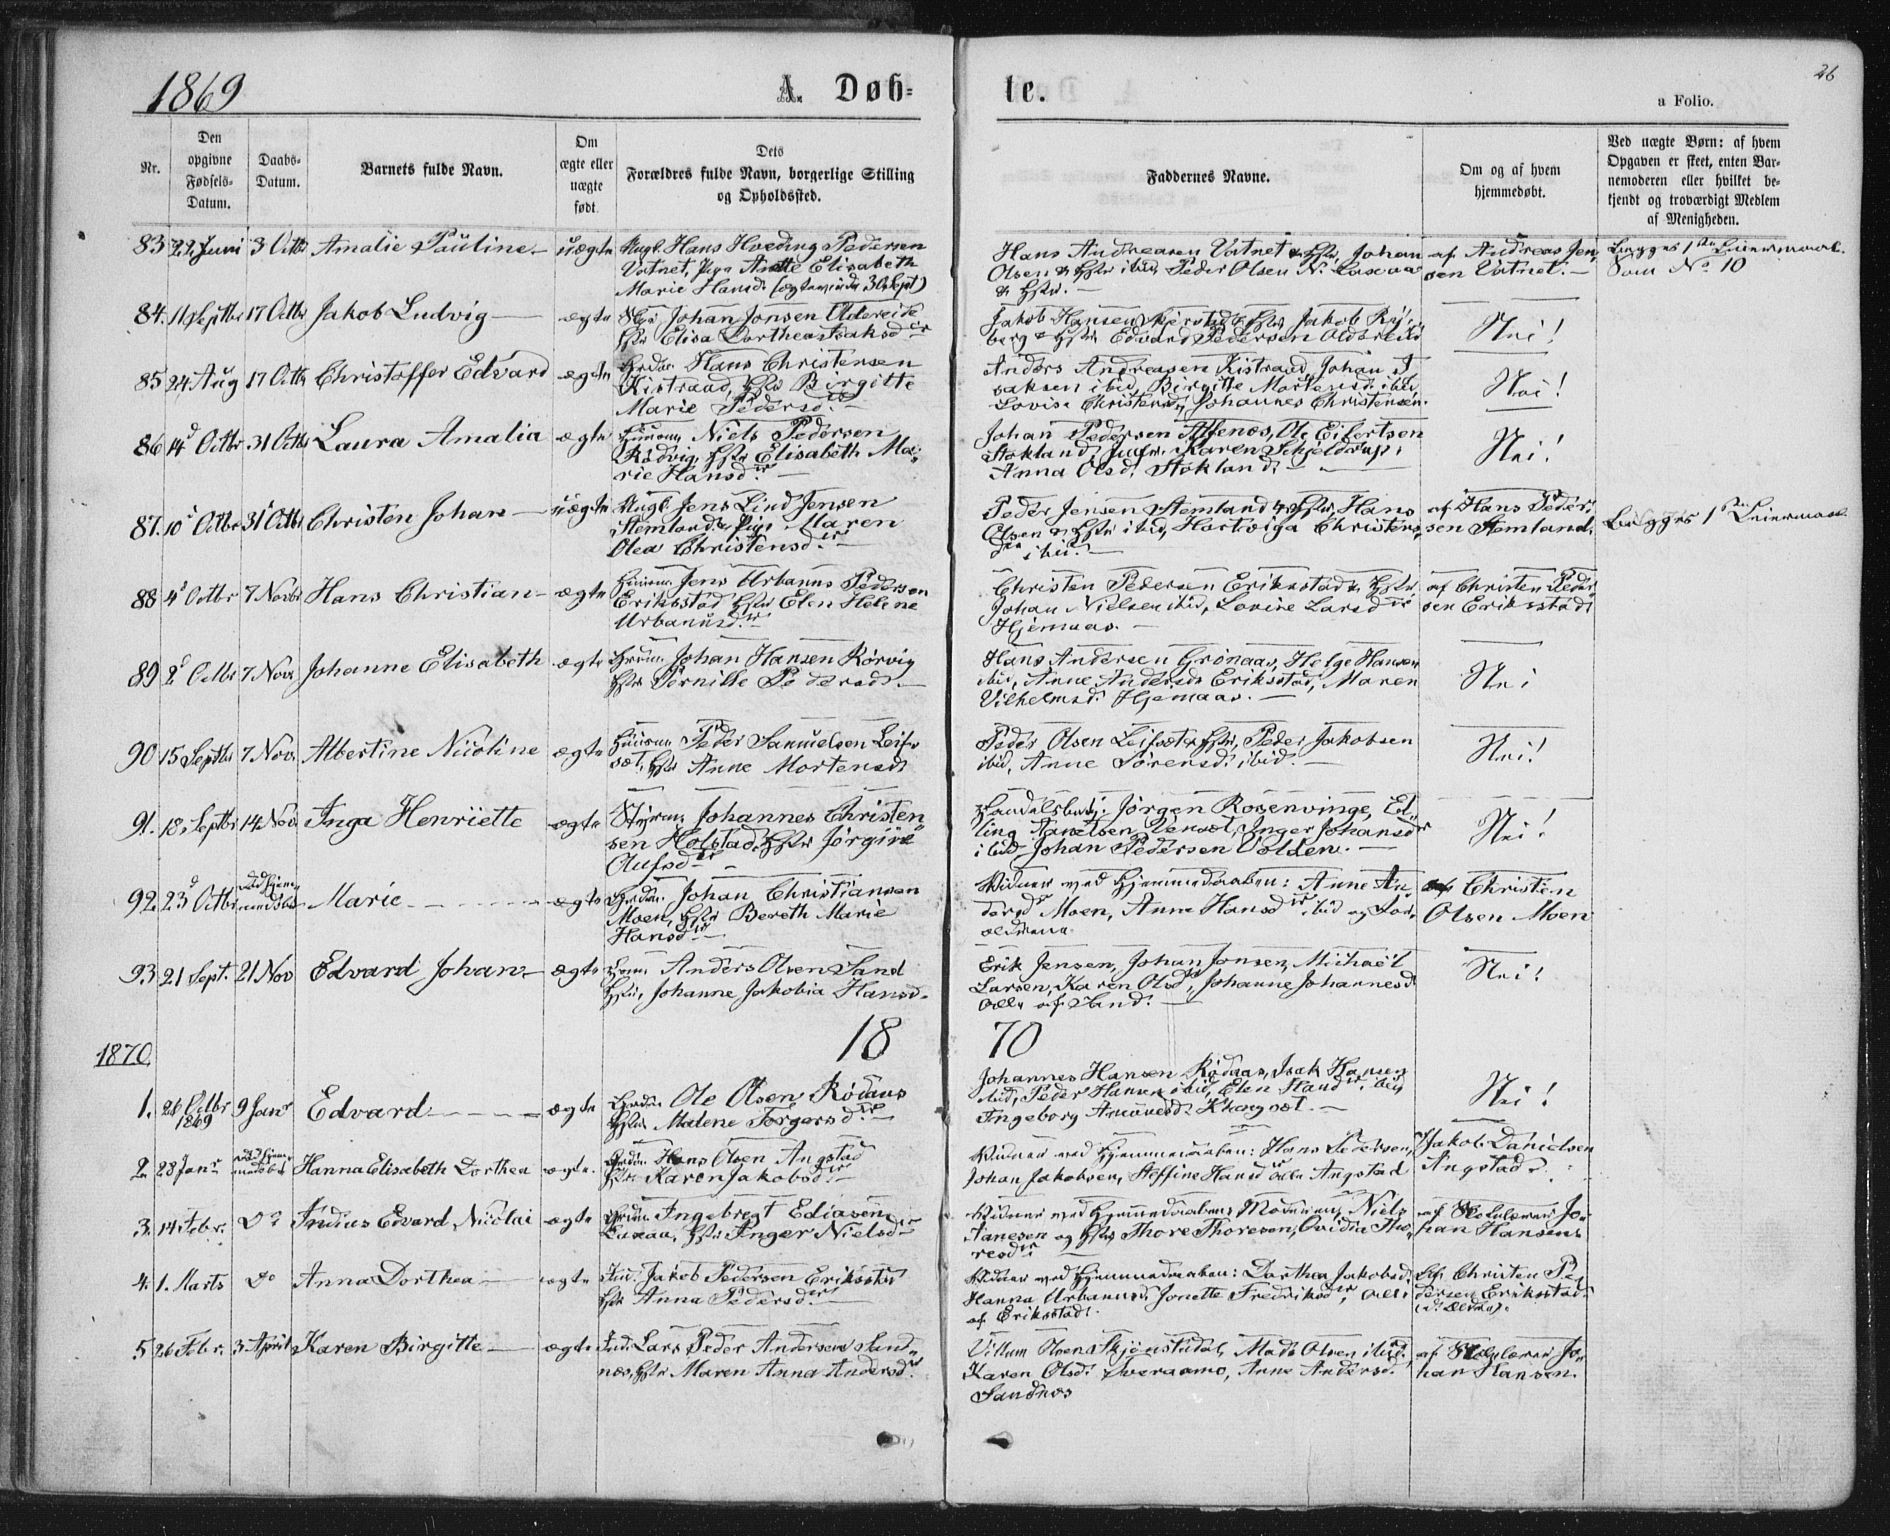 1869
A. Døb=
te.
26
a Folio.
Nr.
Den opgivne Fødsels-Datum.
Daabs-Datum.
Barnets fulde Navn.
Om ægte eller uægte født.
Dets Forældres fulde Navn, borgerlige Stilling og Opholdssted.
Faddernes Navne.
Om og af hvem hjemmedøbt.
Ved uægte Børn: af hvem Opgaven er skeet, enten Barnemoderen eller hvilket bekjendt og troværdigt Medlem af Menigheden.
83 22 Juni 3 Octb Amalie Pauline uægte Ungk. Hans Hveding Pedersen
Vatnet, Pige Anette Elisabeth
Marie Hansd. (ægteviede 3 Sept)
Hans Andreasen Vatnet & Hstr, Johan
Olsen & Hstr ibid, Peder Olsen N. Laxaa
& Hstr.
af Andreas Jen
sen Vatnet.
Begges 1ste Leiermaal.
Som No 10
84. 11 Septbr 17 Octbr Jakob Ludvig ægte Johan Jonsen Oldereide
Hstr Elisa Dorthea Isaksdr
Jakob Hansen Hstr Jakob Ry-
berg & Hstr Edvard Pedersen Oldereid
Nei!
85 24 Aug 17 Octb Christoffer Edvard ægte Hans Christensen
Kistraad, Hstr Birgitte
Marie Pedersdr
Anders Andreasen Kistrand, Johan I
saksen ibid, Birgitte Mortensd ibid
Lovise Christensd, Johannes Christensen.
Nei!
86 14d Octbr 31 Octb Laura Amalia ægte Huusm. Niels Pedersen
Rødvig Hstr Elisabeth Ma-
rie Hansdr
Johan Pedersen Alfenes, Ole Eilertsen
Stokland, Karen Schjelderup,
Anna Olsd. Stokland
Nei!
87. 10d Octbr 31 Octb Christen Johan uægte Ungk. Jens Lind Jensen
Stemland & Pige Maren
Olea Christensdr
Peder Jensen Stemland & Hstr, Hans
Olsen & Hstr ibid, Hartviga Christens
dtr ibid.
af Hans Peder
sen Stemland.
Begges 1ste Leiermaal
88 4d Octbr 7 Novbr Hans Christian ægte Huusm. Jens Urbanus Pedersen
Eriksstad Hstr Elen Helene
Urbanusdr
Christen Pedersen Eriksstad & Hstr
Johan Nielsen ibid, Lovise Larsdr
Hjemaas.
af Christen Peder
sen Eriksstad
89 8d Octbr 7 Nov. Johanne Elisabeth ægte Johan Hansen Rørvig
Hstr Pernille Pedersd.
Hans Andersen Grønaas, Helge Hansen
ibid, Anne Andersd Eriksstad, Maren
Vilhelmsd. Hjemaas.
Nei
90 15 Septbr 7 Nov. Albertine Nicoline ægte Huusm. Peder Samuelsen Leif-
set, Hstr Anne Mortensd
Peder Olsen Leifset & Hstr, Peder Jakobsen
ibid, Anne Sørensd. ibid.
Nei!
91. 18 Septbr 14 Nov. Inga Henriette ægte Johannes Christen
sen Holstad, Hstr Jørgine
Olufsdr
Jørgen Rosenvinge, El-
ling Venset, Inger Johansdr
ibid Johan Pedersen Volden.
Nei!
92. 23d Octbr Marie ægte Johan Christiansen
Moen, Hstr Bereth Marie
Hansdr
Vidner ved Hjemmedaaben: Anne An
dersd Moen, Anne Hansdr ibid og For-
ældrene.
af Christen
Olsen Moen
93 21 Sept. 21 Nov Edvard Johan ægte Anders Olsen Sand
Hstr, Johanne Jakobia Hansd.
Erik Jensen, Johan Jonsen, Michael
Larsen, Karen Olsd, Johanne Johannesd
Alle af Sand.
Nei!
1870
18 70
1. 28 Octbr 1869 9 Janr Edvard ægte Ole Olsen Rødaas
Hstr Malene Torgersdr
Johannes Hansen Rødaas, Isak Hansen
ibid, Peder Hansen ibid, Elen ibid,
Ingeborg
Nei!
2 28 Janr Hanna Elisabeth Dorthea ægte. Hans Olsen Angstad
Hstr Karen Jakobsdr
Vidner ved Hjemmedaaben: Hans Pedersen,
Johan Jakobsen, Steffine Hansd alle Angstad
Jakob Danielsen
Angstad
3. 14 Febr. Do Indius Edvard Nicolai ægte Ingebregt Ediasen
Laxaa, Hstr Inger Nielsdr
Vidner ved Hjemmedaaben: Niels
og Hstr, Thore Thoresen, Tho-
resdr
af Skolelærer Jo-
han Hansen
4. 1. Marts Do Anna Dorthea ægte Ind. Jakob Pedersen Eriksstad
Hstr Anna Pedersdr
Vidner ved Hjemmedaaben: Dorthea Jakobsd,
Hanna Urbanusd, Jonette Fredriksdr, alle
af Eriksstad.
Af Christen Pe
dersen Eriksstad
5 26 Febr. 3 April Karen Birgitte ægte Ind. Lars Peder Andersen Sand-
nes, Hstr Maren Anna Andersdr
Villum Olsen Skjønstudal, Mads Olsen ibid.
Karen Olsd. Sveraamo, Anne Andersd.
Sandnes
af Skolelærer Jo-
han Hansen.